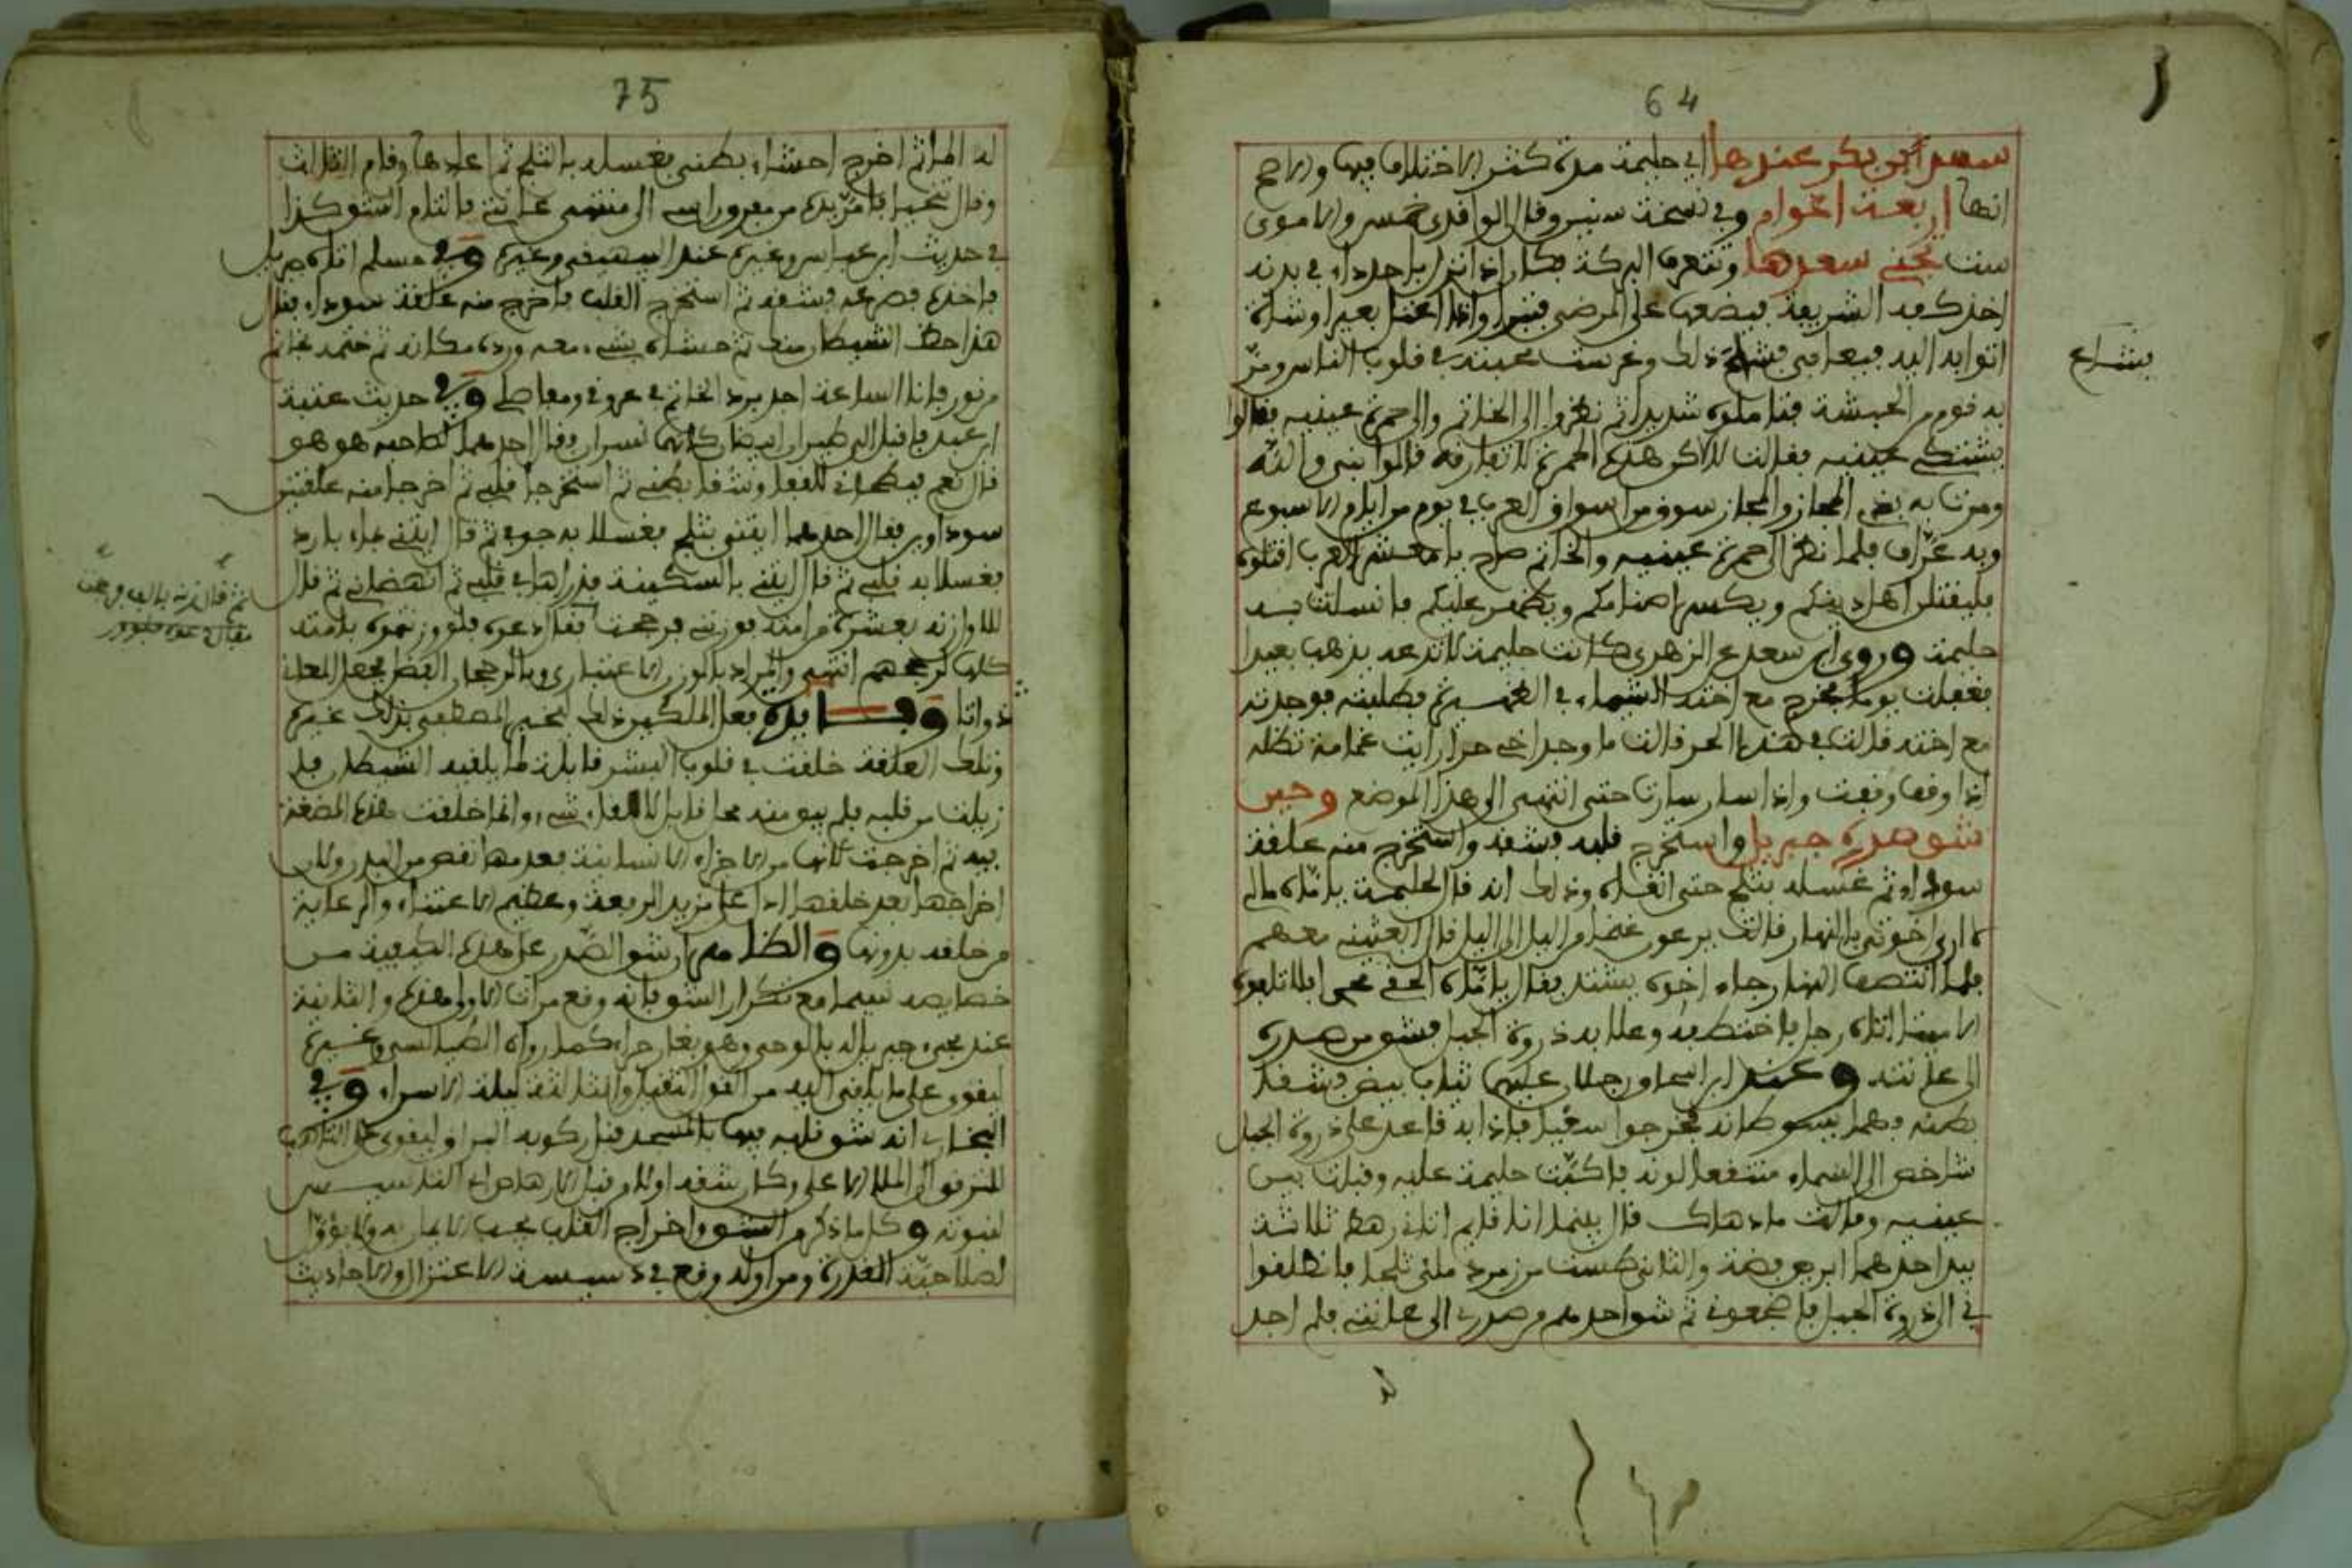 64
سعد ابن بكر عندها اي حليمة مدة كثر الاختلاف فيها والاصح
انها اربعة اعوام وفي نسخة سنين وقال الواقدي خمس والاموي
ست تجني سعدها وتتعرف البركة فكان اذا نزل باحد داء في بدنه
اخذ كفه الشريفة فيضعها على المرضى فيبرا واذا اعتل بعير او شاة
اتوا به اليه فيعافى ذلك وغرست محبته في قلوب الناس ومرّ
بشاع
به قوم من الحبشة فتاملوه شديدا ثم نظروا الى الخاتم والى حمرة عينيه فقالوا
يشتكي عينيه فقالت لا لاكن هذه الحمرة لا تفارقه قالوا نبي والله
ومرت به بذي المجاز والمجاز سوق من اسواق العرب في يوم من ايام الاسبوع
وبه عرّاف فلما نظر الى حمرة عينيه والخاتم صاح يا معشر العرب اقتلوه
فليقتلن اهل دينكم ويكسر اصنامكم ويظهر عليكم فانسلت به
حليمة وروى ابن سعد عن الزهري كانت حليمة لا تدعه يذهب بعيدا
فغفلت يوما فخرج مع اخته الشيماء في الظهيرة فطلبته فوجدته
مع اخته قالت في هذا الحر قالت ما وجد اخي حرا رايت غمامة تظله
اذا وقف وقفت واذا سار سارت حتى انتهى الى هذا الموضع وحين
شق صدره جبريل واستخرج قلبه فشقه واستخرج منه علقة
سوداء ثم غسله بثلج حتى انقاه وذلك انه قال لحليمة يا امّاه مالي
لا ارى اخوتي بالنهار قالت يرعون غنما من اليل الى اليل قال ابعثيني معهم
فلما انتصف النهار جاء اخوه يشتد فقال يا امّاه الحقي محمدا فلا تلحقوه
الا ميتا اتاه رجل فاختطفه وعلا به ذروة الجبل فشق من صدره
الى عانته وعند ابن اسحاق رجلان عليهما ثياب بيض فشقا
بطنه فهما يسوطانه فخرجوا سعيا فاذا به قاعد على ذروة الجبل
شاخص الى السماء منتقعا لونه فاكبّت حليمة عليه وقبلت بين
عينيه وقالت ما دهاك قال بينما انا قايم اتاني رهط ثلاثة
بيد احدهم ابريق فضة والثاني طست من زمرد ملئى ثلجا فانطلقوا
بي الى ذروة الجبل فاضجعوني ثم شق احدهم من صدري الى عانتي فلم اجد
75
له الما ثم اخرج احشاء بطني فغسله بالثلج ثم اعادها وقام الثالث
وقال تنحيا فامرّ يده من مفرق راسي الى منتهى عانتي فالتام الشق وكذا
في حديث ابن عباس وغيره عند البيهقي وغيره وفي مسلم اتاه جبريل
فاخذه فصرعه فشقه ثم استخرج القلب فاخرج منه علقة سوداء فقال
هذا حظ الشيطان منك ثم حشاه بشيء معه ورده مكانه ثم ختمه بخاتم
من نور فانا الساعة اجد برد الخاتم في عروقي ومفاصلي وفي حديث عتبة
ابن عبد فاقبل الي طيران ابيضان كانهما نسران فقال احدهما لصاحبه هو هو
قال نعم فبطحاني للقفا وشقا بطني ثم استخرجا قلبي ثم اخرجا منه علقتين
سوداوين فقال احدهما ايتني بثلج فغسلا به جوفي ثم قال ايتني بماء بارد
فغسلا به قلبي ثم قال ايتني بالسكينة فذراها في قلبي ثم انهضاني ثم قال
ثم قال زنه بالف فرجحت
فقال دعوه فلو
للاول زنه بعشرة من امته فوزنني فرجحت فقال دعوه فلو وزنتموه بامته
كلها لرجحهم انتهى والمراد بالوزن الاعتباري وبالرجحان الفضل فجعل المعاني
ذواتا وفـايدة فعل الملكين ذلك ليخبر المصطفى بذلك غيره
وتلك العلقة خلقت في قلوب البشر قابلة لما يلقيه الشيطان فلما
زيلت من قلبه فلم يبق منه محل قابل لالقاء شيء وانما خلقت هذه المضغة
فيه ثم اخرجت لانها من الاجزاء الانسانية فعدمها نقص من البدن وكان
اخراجها بعد خلقها ادل على مزيد الرفعة وعظيم الاعتناء والرعاية
من خلقه بدونها والظاهر ان شق الصدر على هذه الكيفية من
خصايصه سيما مع تكرار الشق فانه وقع مرات الاولى هذه والثانية
عند مجيء جبريل له بالوحي وهو بغار حراء كما رواه الطيالسي وغيره
ليقوى على ما يلقى اليه من القول الثقيل والثالثة ليلة الاسراء وفي
البخاري انه شق قلبه فيها بالمسجد قبل ركوبه البراق ليقوى على التاهب
للترقي الى الملا الاعلى وكان شقه اولا من قبيل الارهاصات التاسيس
لنبوته وكل ما ذكر من الشق واخراج القلب يجب الايمان به ولا يؤوّل
لصلاحيّة القدرة ومن اوله وقع في دسيسة الاعتزال والاحاديث